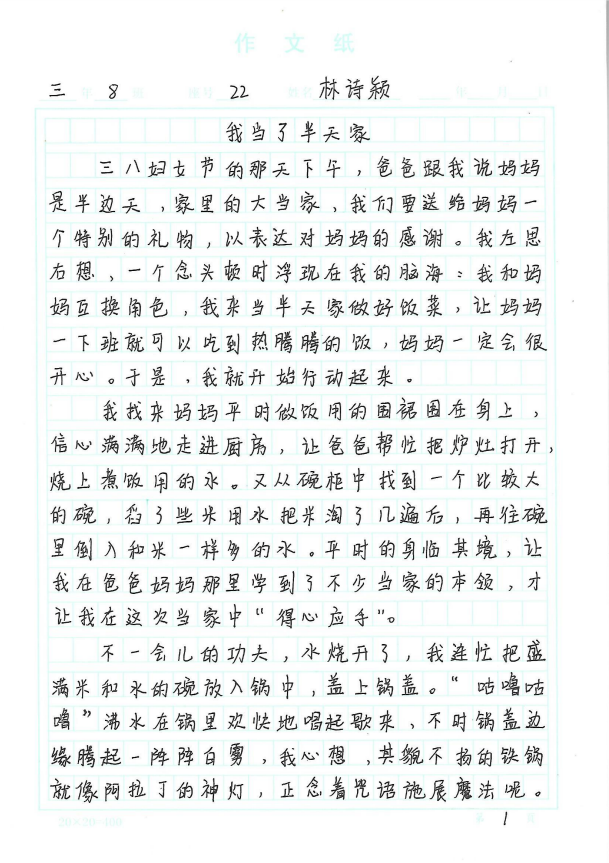 作文纸
三 年 8 班 22 林诗颖 年 月 日
我当了半天家
三八妇女节的那天下午，爸爸跟我说妈妈
是半边天，家里的大当家，我们要送给妈妈一
个特别的礼物，以表达对妈妈的感谢。我左思
右想，一个念头顿时浮现在我的脑海：我和妈
妈互换角色，我来当半天家做好饭菜，让妈妈
一下班就可以吃到热腾腾的饭，妈妈一定会很
开心。于是，我就开始行动起来。
我找来妈妈平时做饭用的围裙围在身上，
信心满满地走进厨房，让爸爸帮忙把炉灶打开，
烧上煮饭用的水。又从碗柜中找到一个比较大
的碗，舀了些米用水把米淘了几遍后，再往碗
里倒入和米一样多的水。平时的身临其境，让
我在爸爸妈妈那里学到了不少当家的本领，才
让我在这次当家中“得心应手”。
不一会儿的功夫，水烧开了，我连忙把盛
满米和水的碗放入锅中，盖上锅盖。“咕噜咕
噜”沸水在锅里欢快地唱起歌来，不时锅盖边
缘腾起一阵阵白雾，我心想，其貌不扬的铁锅
就像阿拉丁的神灯，正念着咒语施展魔法呢。
20×20=400 第 1 页